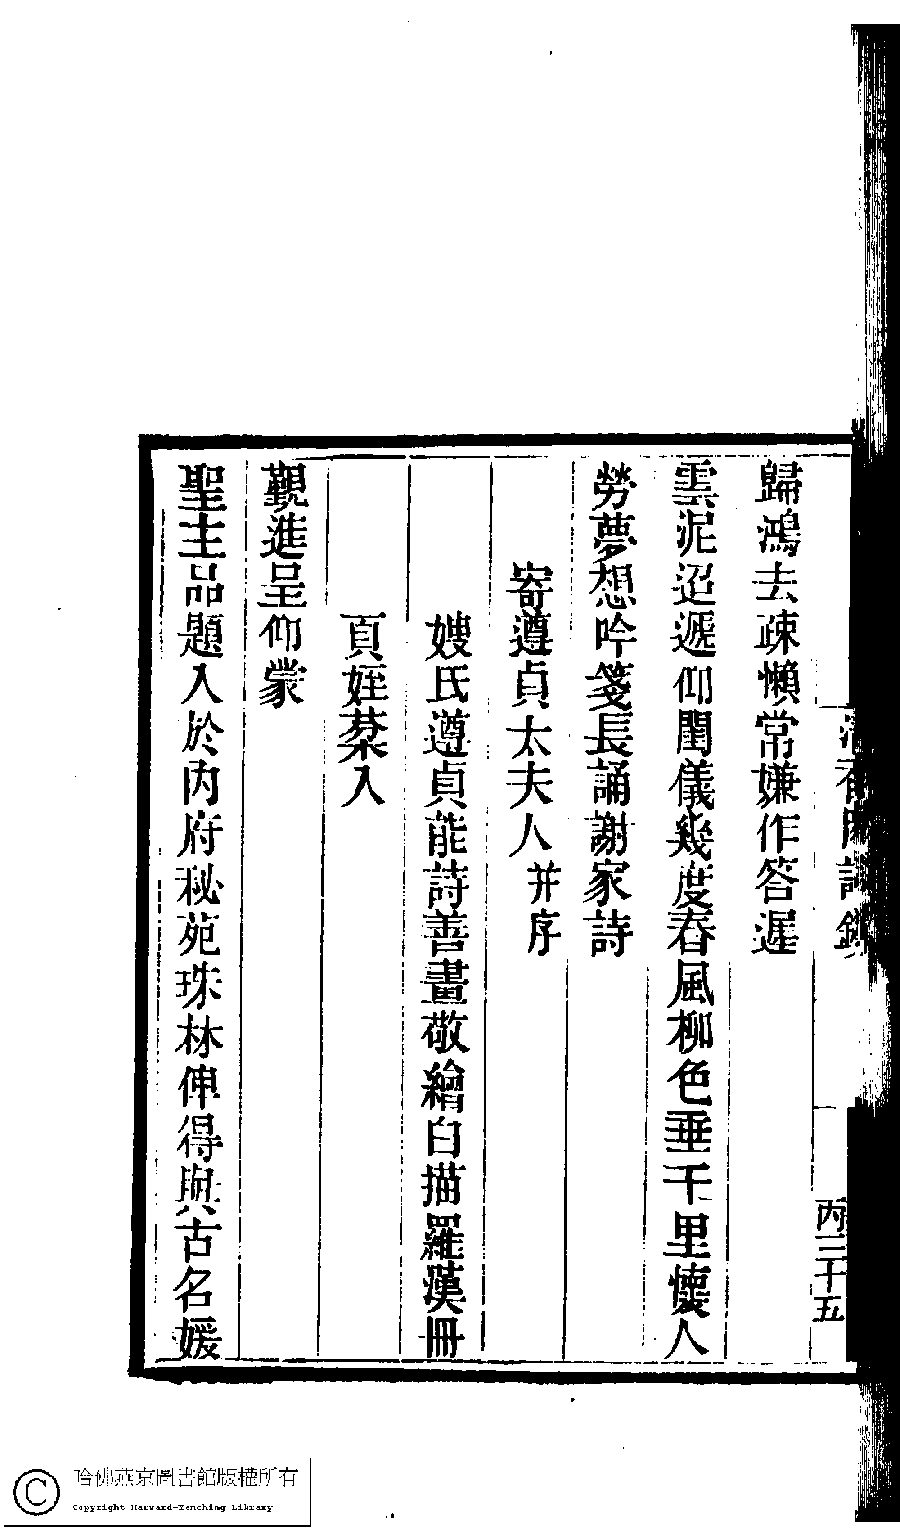 歸鴻去疎懶常嫌作答遲
雲泥迢遞仰閨儀幾度春風柳色垂千里懷人
勞夢想吟箋長誦謝家詩
寄遵貞太夫人并序
嫂氏遵貞能詩善畫敬繪白描羅漢冊
頁姪棻入
覲進呈仰蒙
聖主品題入於內府秘苑珠林俾得與古名媛
丙三十五
哈佛燕京圖書館版權所有
Copyright Harvard-Yenching Library